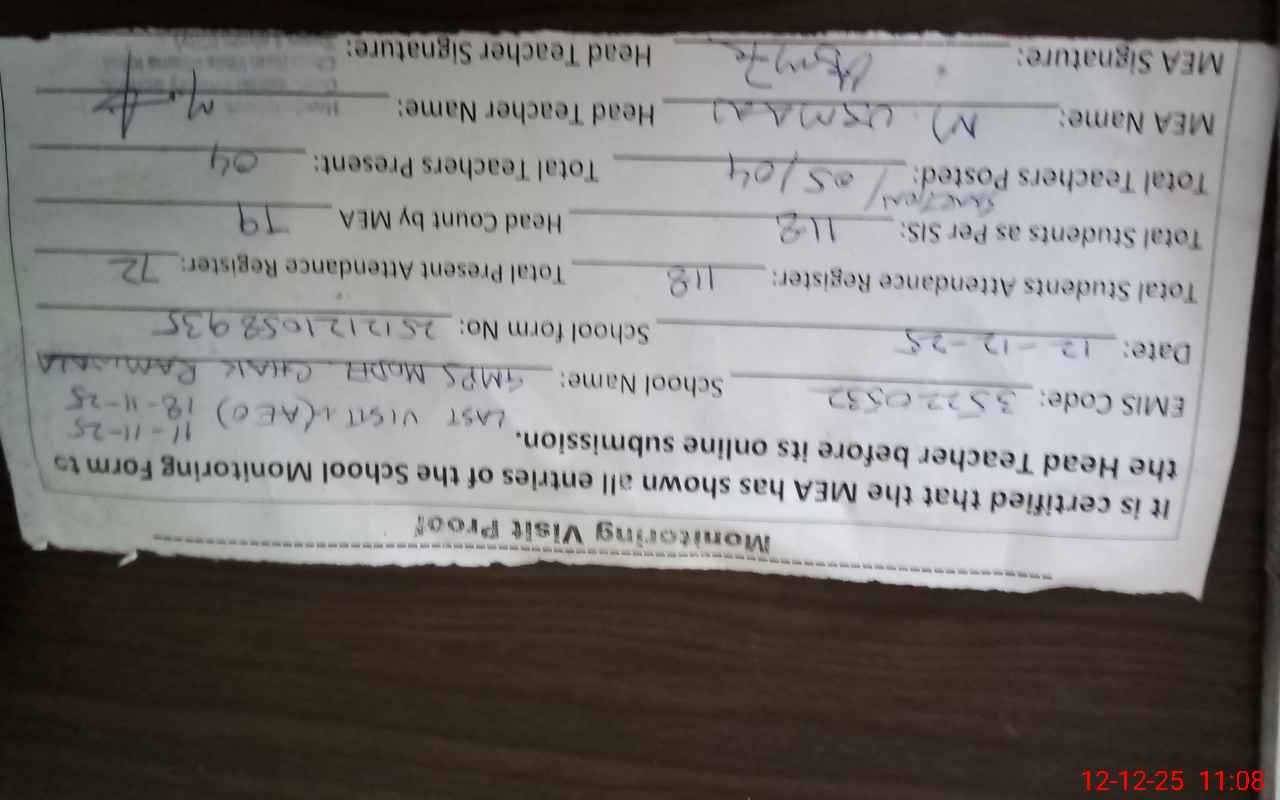 Monitoring Visit Proof
It is certified that the MEA has shown all entries of the School Monitoring Form to
the Head Teacher before its online submission. 11-11-25
LAST VISIT (AEO) 18-11-25
EMIS Code: 35220532 School Name: GMPS MODEL CHAK RAMWALA
Date: 12-12-25 School form No: 2512121058935
Total Students Attendance Register: 118 Total Present Attendant Register: 72
Total Students as Per SIS: 118 Head Count by MEA 79
SANCTION/
Total Teachers Posted: 05/04 Total Teachers Present: 04
MEA Name: M. USMAN Head Teacher Name:
MEA Signature: Head Teacher Signature:
12-12-25 11:08